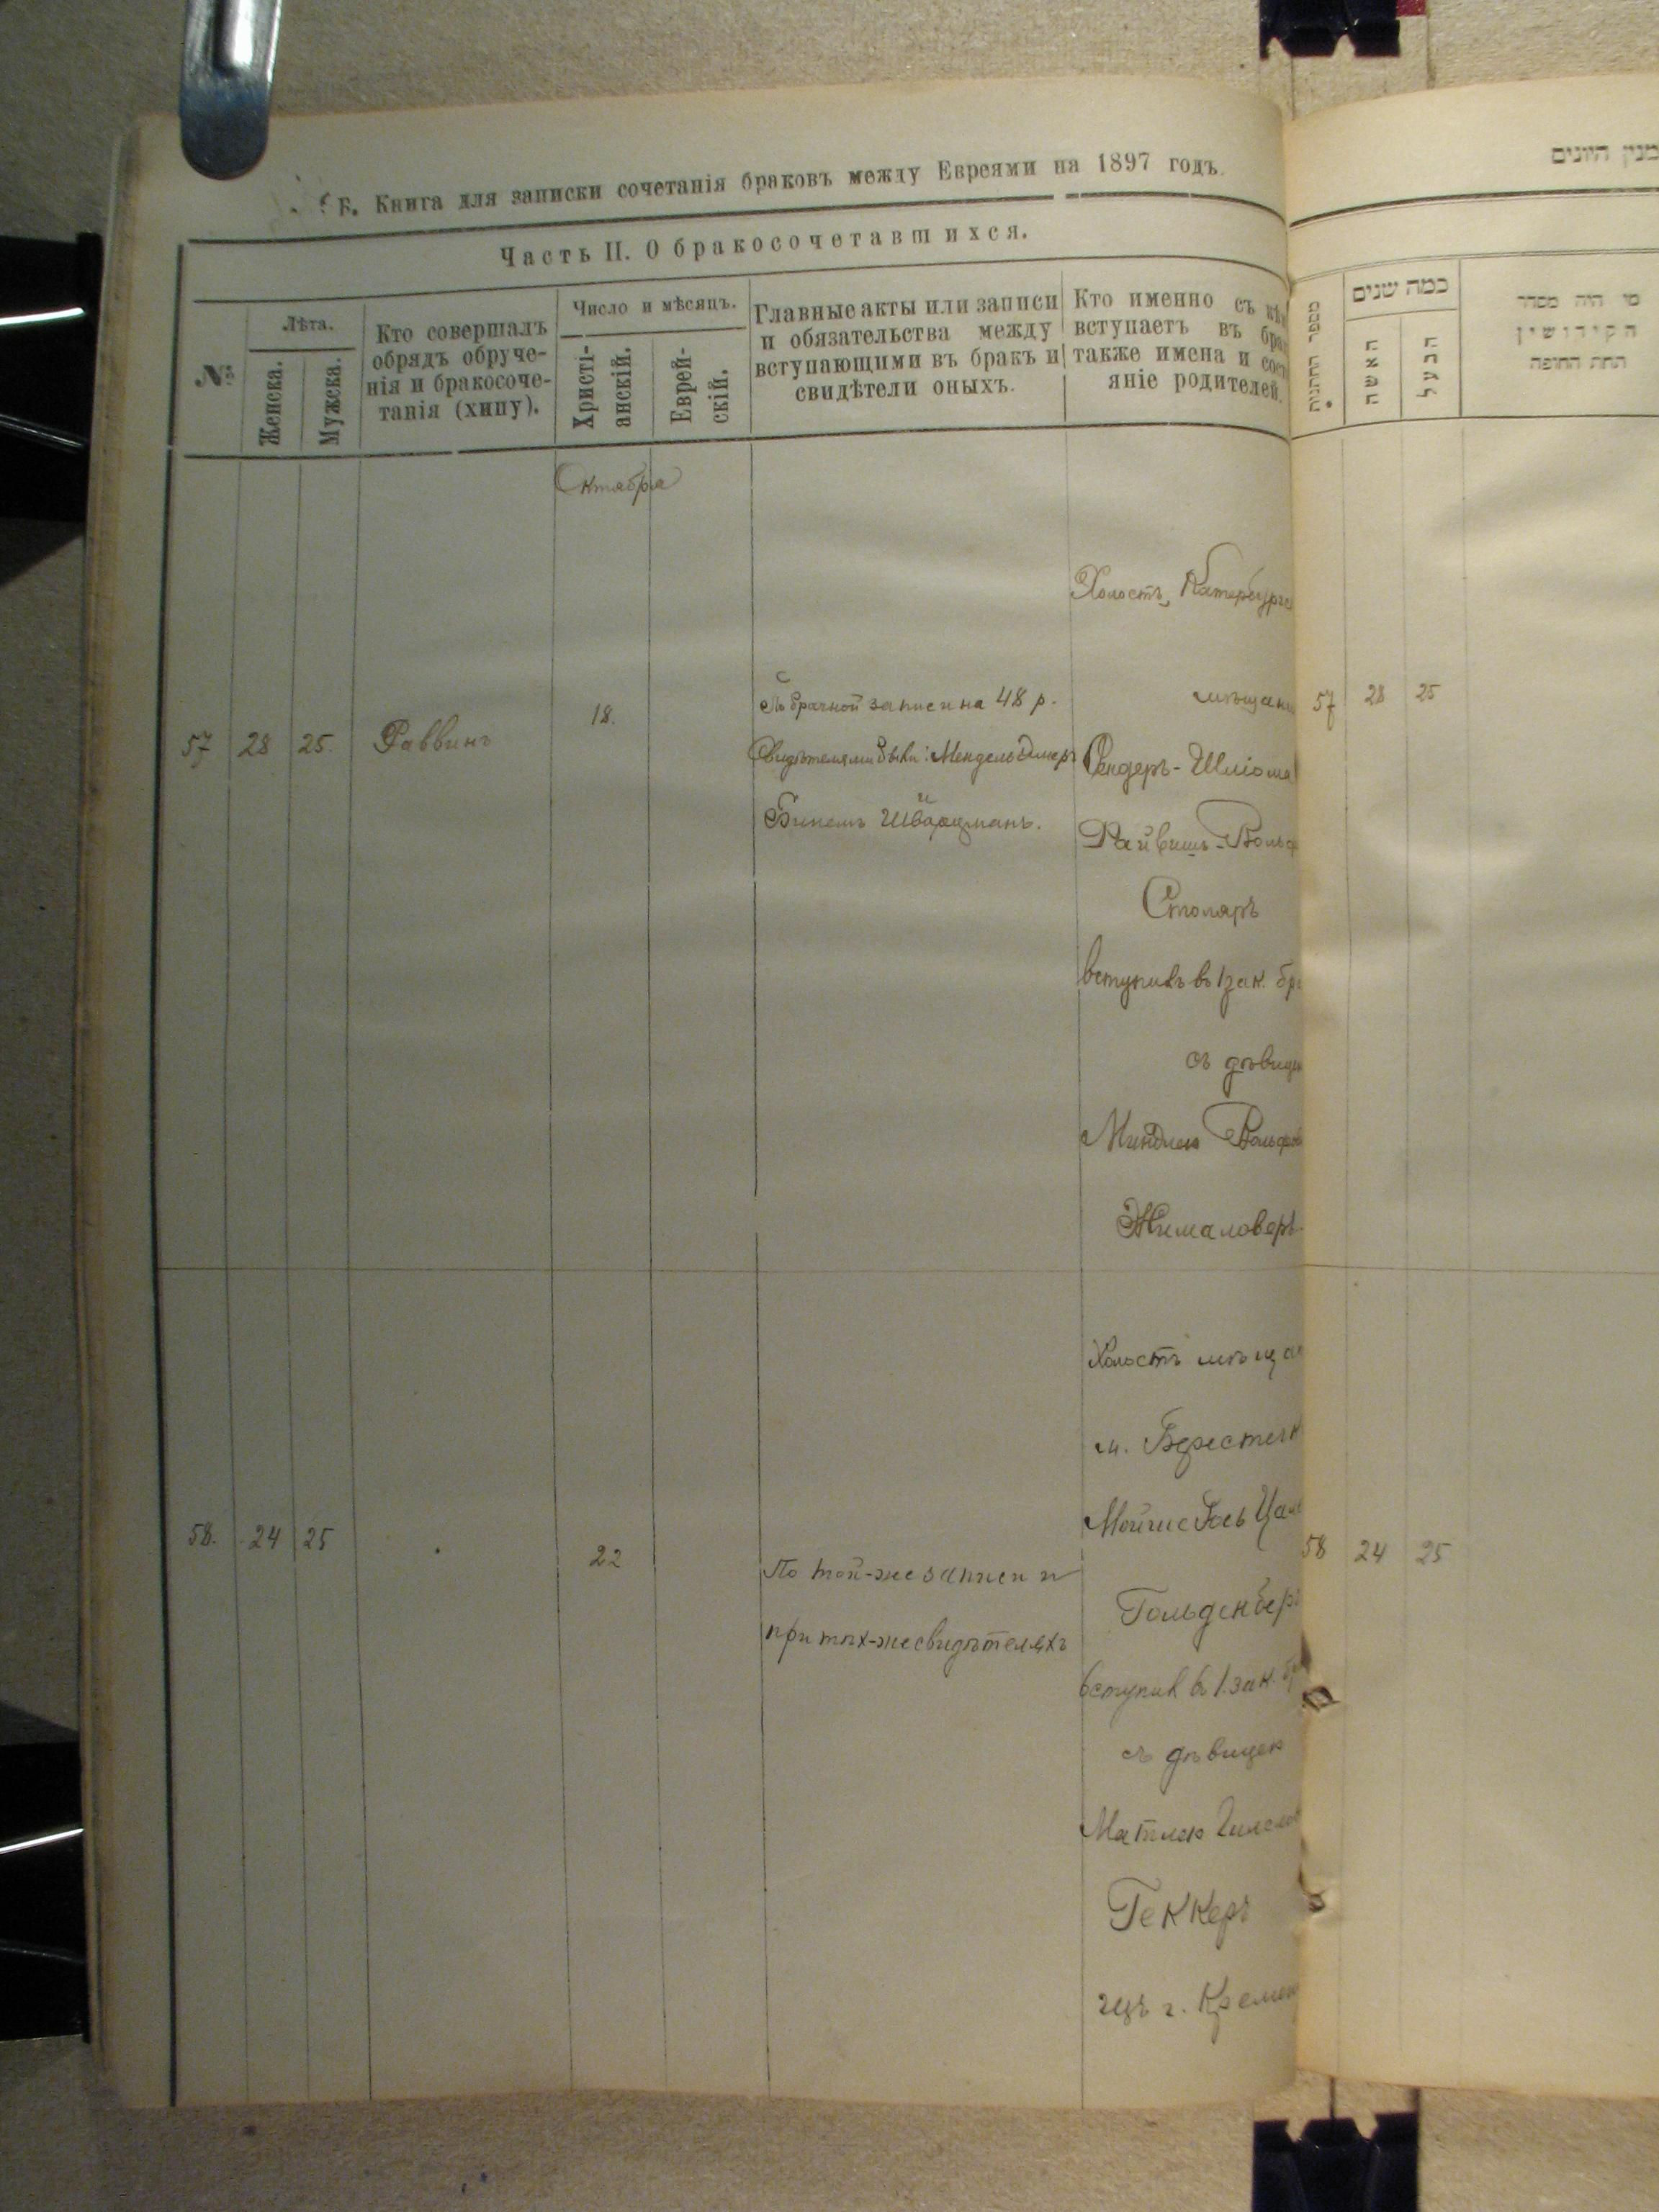 Б. Книга для записки сочетанія браковъ между Евреями на 1897 годъ.
Часть II. О бракосочетавшихся.
№
Лѣта.
Женска.
Мужска.
Кто совершалъ
обрядъ обруче-
нія и бракосоче-
танія (хипу).
Число и мѣсяцъ.
Христі-
анскій.
Еврей-
скій.
Главные акты или записи
и обязательства между
вступающими въ бракъ и
свидѣтели оныхъ.
Кто именно съ кѣм
вступаетъ въ бра
также имена и сост
яніе родителей.
Октября
57
28
25.
Раввинъ
18.
брачной записи на 48 р.
Свидѣтелями были: Мендель
и
Шварцманъ.
Холостъ, Катербургс
мѣщани
Сендеръ-Шліома
Вольф
Столяръ
вступилъ въ 1 зак. бр
съ дѣвице
Миндлею Вольфов
58.
24
25
22
По той-же записи и
при тѣх-же свидѣтеляхъ
Холостъ мѣща
м. Берестечк
Гольденбер
вступил въ 1. зак. бр
съ дѣвицею
Матлею
Геккеръ
г. Кремен
מנין היונים
מספר החתונות
כמה שנים
האשה
הבעל
מי היה מסדר
הקידושין
תחת החופה
57
28
25
58
24
25